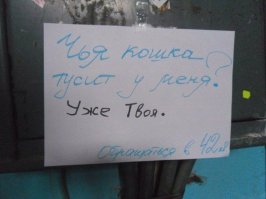 Чья кошка
тусит у меня?
Уже Твоя.
Обращаться в 42 к